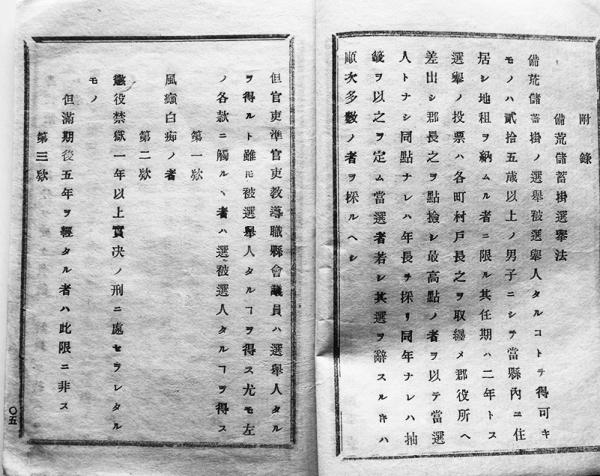 附錄
備荒儲蓄掛選擧法
備荒儲蓄掛ノ選擧被選擧人タルコトヲ得可キ
モノハ貳拾五歲以上ノ男子ニシテ當縣內ニ住
居シ地租ヲ納ムル者ニ限ル其任期ハ二年トス
選擧ノ投票ハ各町村戶長之ヲ取纒メ郡役所ヘ
差出シ郡長之ヲ點撿シ最高點ノ者ヲ以テ當選
人トナシ同點ナレハ年長ヲ採リ同年ナレハ抽
籤ヲ以之ヲ定ム當選者若シ其選ヲ辭スルキハ
順次多數ノ者ヲ採ルヘシ
但官吏準官吏敎導職縣會議員ハ選擧人タル
ヲ得ルト雖モ被選擧人タルヿヲ得ス尤モ左
ノ各款ニ觸ルヽ者ハ選被選人タルヿヲ得ス
第一欵
風癲白痴ノ者
第二欵
懲役禁獄一年以上實决ノ刑ニ處セラレタル
モノ
但滿期後五年ヲ經タル者ハ此限ニ非ス
第三欵
〇五